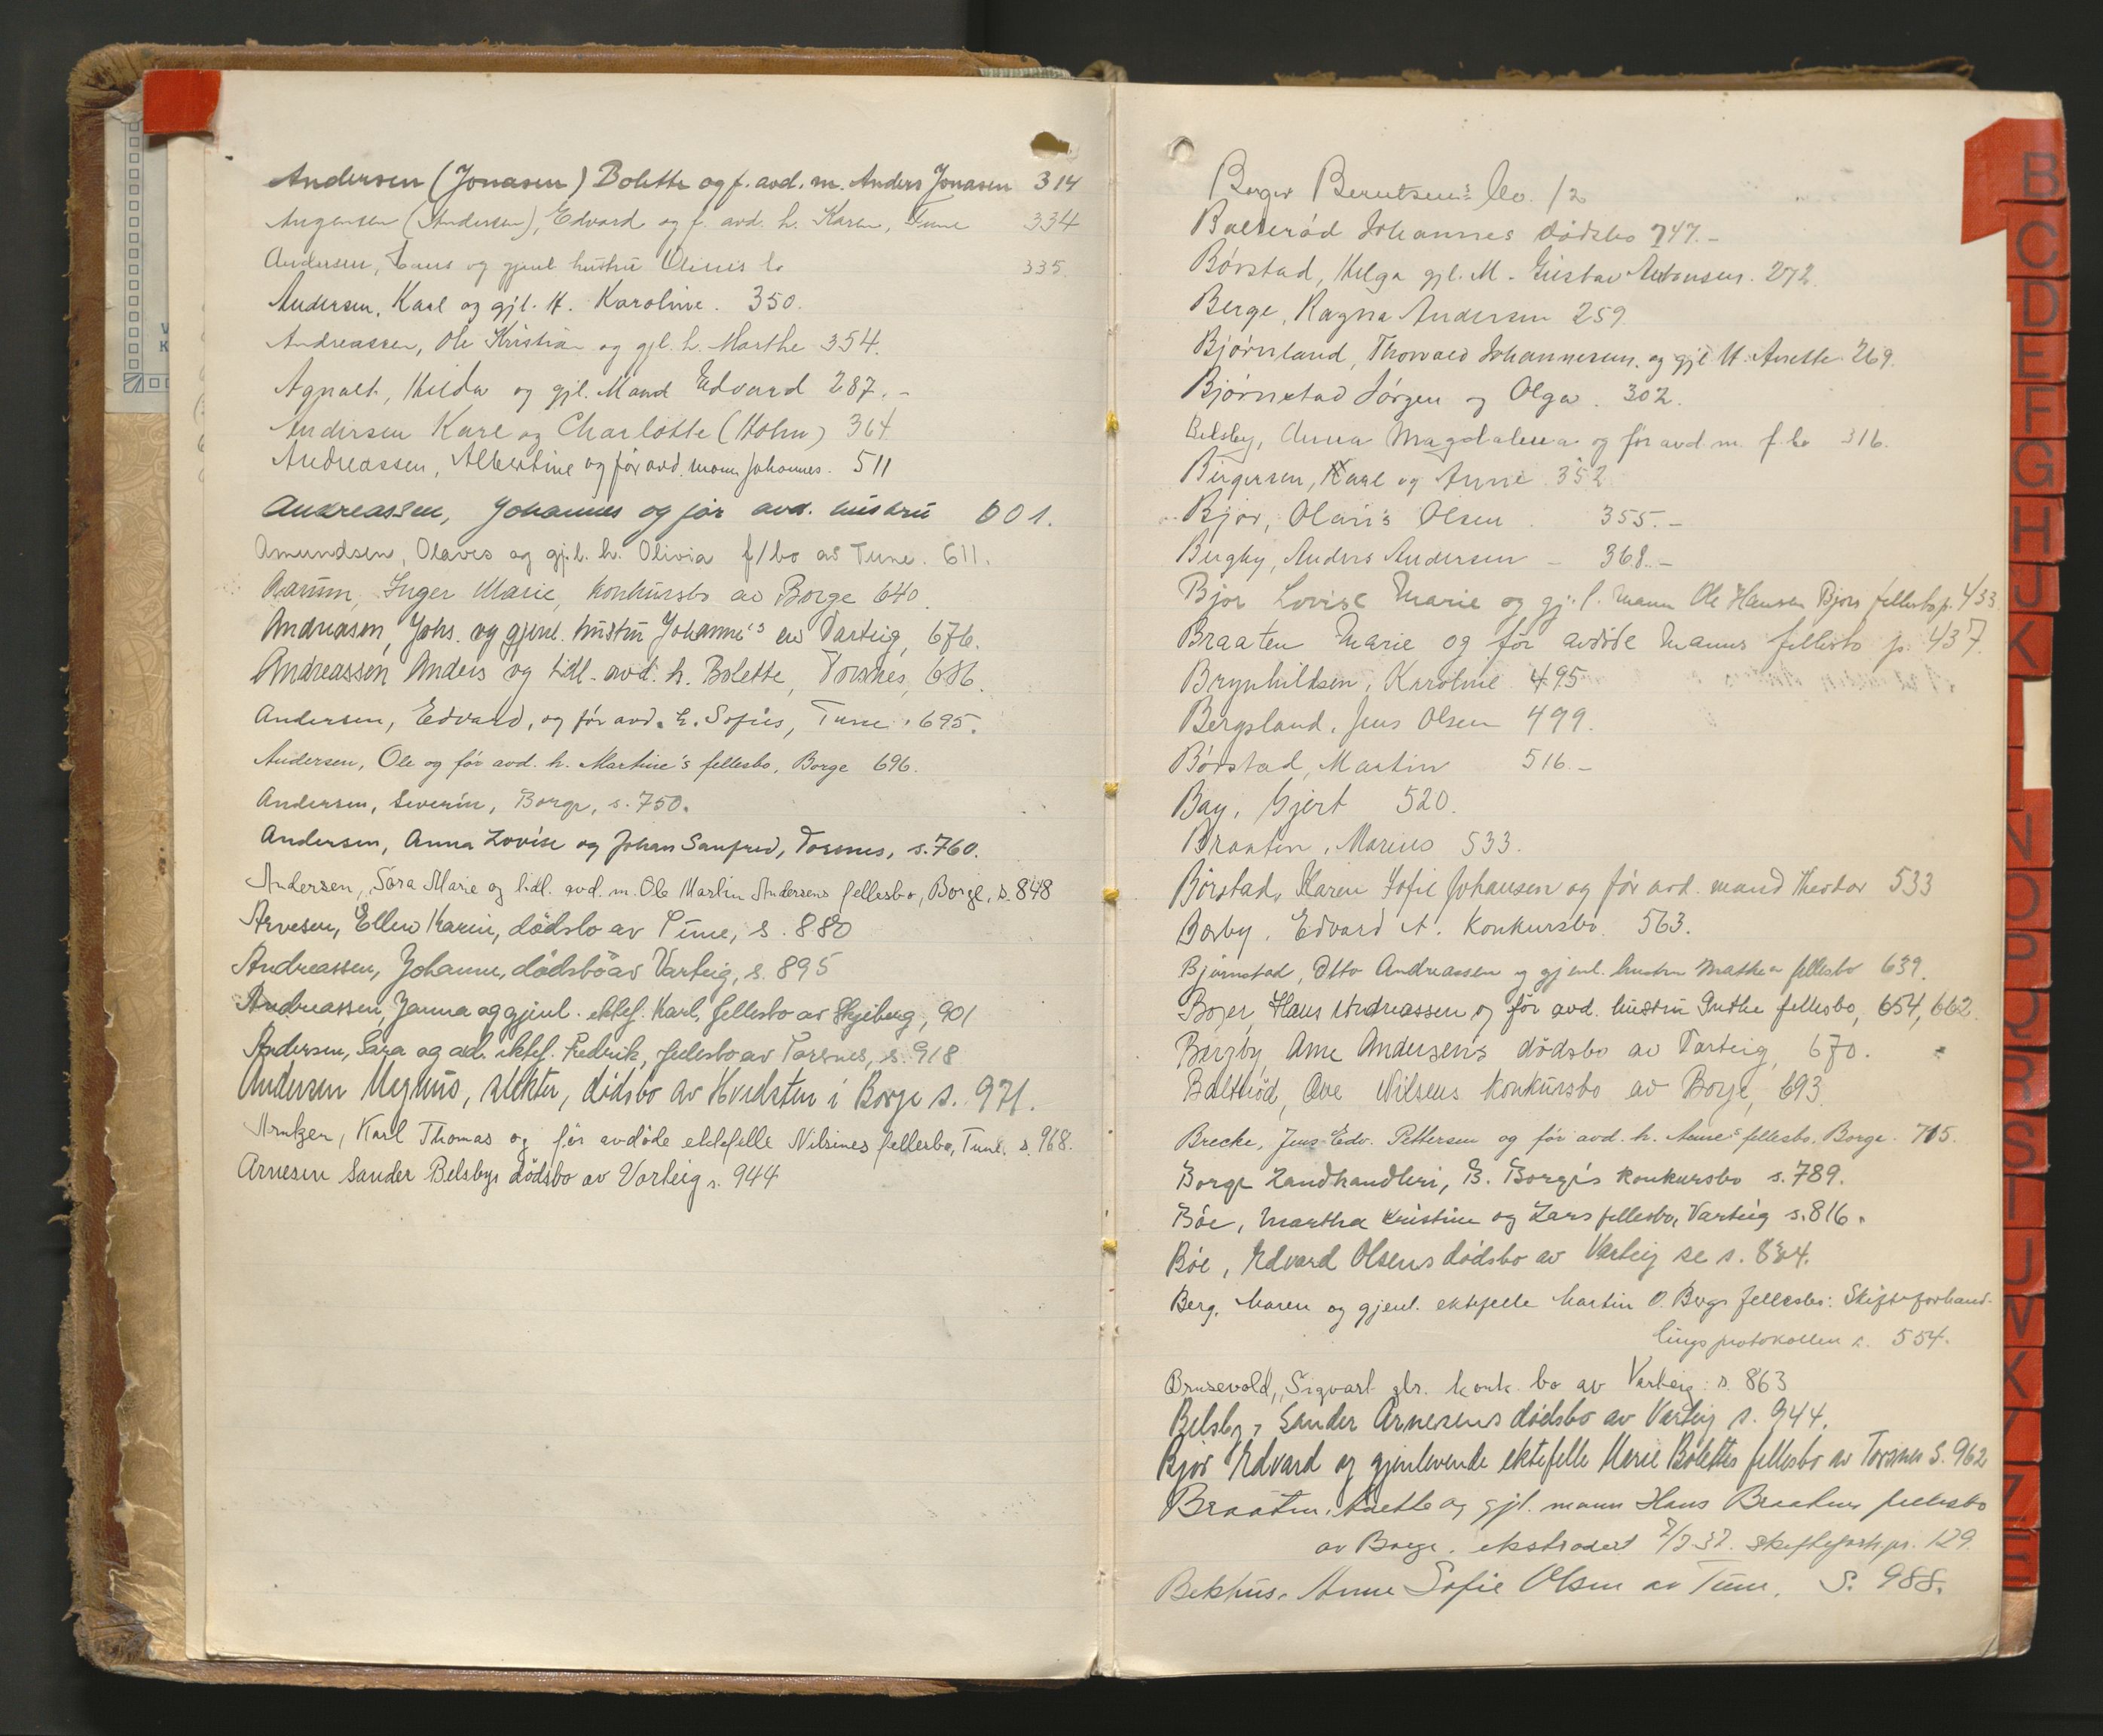 Andersen (Jonasen) Bolette og f. avd. m. Anders Jonasen 314
(Andersen), Edvard og f. avd. h. Karen, Tune 334
Andersen, og gjenl. hustru 335
Andersen, Karl og gjl. H. Karoline. 350.
Andreassen, Ole Kristian og gjl. h. Marthe 354.
Agnalt, Hilda og gjl. Mand Edvard 287.-
Andersen Karl og Charlotte (Holm) 364
Andreassen, Albertine og før avd. mann Johannes. 511
Andreassen, Johannes og før avd. hustru 601.
Amundsen, Olaves og gj.l. h. Olivia f/bo av Tune. 611.
Aarum, Inger Marie, konkursbo av Borge 640.
Andreasen, Johs. og gjenl. hustru Johanne's av Varteig, 676.
Andreassen Anders og tidl. avd. h. Bolette, Torsnes, 686.
Andersen, Edvard, og før avd. h. Sofies, Tune, 695.
Andersen, Ole og før avd. h. Martine's fellesbo, Borge 696.
Andersen, Severin, Borge, s. 750.
Andersen, Anna Lovise og Johan Sanfred, Torsnes, s. 760.
Andersen, Sara Marie og tidl. avd. m. Ole Martin Andersens fellesbo, Borge, s. 848
Arvesen, Ellen Karin, dødsbo av Tune, s. 880
Andreassen, Johanne, dødsbo av Varteig, s. 895
Andreassen, Janna og gjenl. ektef. Karl, fellesbo av Skjeberg, 901
Andersen, Sara og avd. ektef. Fredrik, fellesbo av Torsnes, s. 918
Andersen Magnus, slakter, dødsbo av Hvidsten i Borge s. 971.
Karl Thomas og før avdøde ektefelle Nilsines fellesbo, Tune. s. 968.
Arnesen Sander Belsbys dødsbo av Varteig s. 944
Birger Berntsens bo. 12
Balterød Johannes dødsbo 747.-
Børstad, Helga gjl. M. Gustav Antonsen. 272.
Berge, Ragna Andersen 259.
Bjørnland, Thorvald Johannesen. og gjl H. Anette 269.
Bjørnstad Jørgen og Olga. 302.
Belsby, Anna Magdalena og før avd. m. f.bo 316.
Birgersen, Karl og Anne 352
Bjør, Olaris Olsen 355.-
Bergby, Anders Andersen - 368.-
Bjør Lovise Marie og gj.l. mann Ole Hansen Bjørs fellesbo p. 433
Braaten Marie og før avdøde manns fellesbo p. 437.
Brynhildsen, Karoline 495
Bergsland, Jens Olsen 499.
Børstad, Martin 516.-
Bay, Gjert 520.
Braaten, Marius 533.
Børstad, Karen Sofie Johansen og før avd. mand Theodor 533
Borby, Edvard A. Konkursbo. 563.
Bjørnstad, Otto Andreassen og gjenl. hustru Mathea fellesbo 639.
Hans Andreassen og før avd. hustru fellesbo, 654, 662.
Bergby, Arne Andersens dødsbo av Varteig, 670.
Balterød, Ove Nilsens konkursbo av Borge, 693.
Brecke, Jens Edv. Pettersen og før avd. h. fellesbo, Borge. 715.
Borge Landhandleri, B. Borge's konkursbo s. 789.
Bøe, Martha Kristine og Lars fellesbo, Varteig s. 816.
Bøe, Edvard Olsens dødsbo av Varteig se s. 834.
Berg, Maren og gjenl. ektefelle Martin O. Bergs fellesbo: Skifteforhand-
lingsprotokollen s. 554.
Brusevold, Sigvart gbr. konk. bo av Varteig: s. 863
Belsby, Sander Arnesens dødsbo av Varteig s. 944.
Bjør Edvard og gjenlevende ektefelle Marie Bolettes fellesbo av Torsnes S. 962
Braaten, Anette og gjl. mann Hans Braatens fellesbo
av Borge. ekstradert 2/2 32. Skifteforh.pr. 129.
Bekhus, Anne Sofie Olsen av Tune. S. 988.
B
C
D
E
F
G
H
J
K
N
O
P
Q
R
S
T
U
V
X
Y
Z